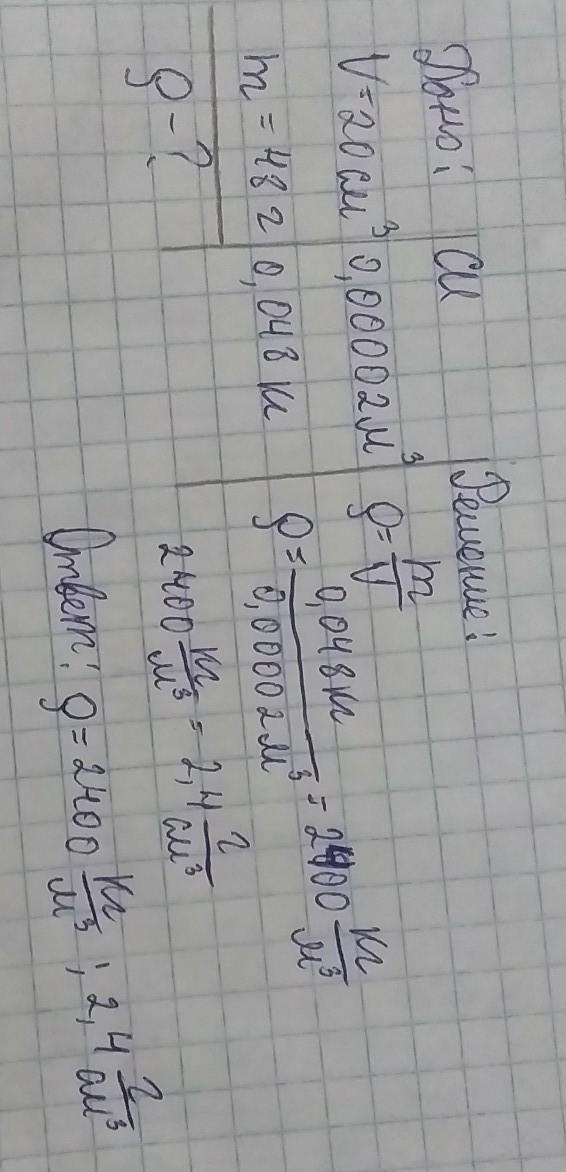 Дано:
V = 20 см³
m = 48 г
ρ - ?
СИ
0,00002 м³
0,048 кг
Решение:
ρ = m/V
ρ = 0,048 кг / 0,00002 м³ = 2400 кг/м³
2400 кг/м³ = 2,4 г/см³
Ответ: ρ = 2400 кг/м³; 2,4 г/см³